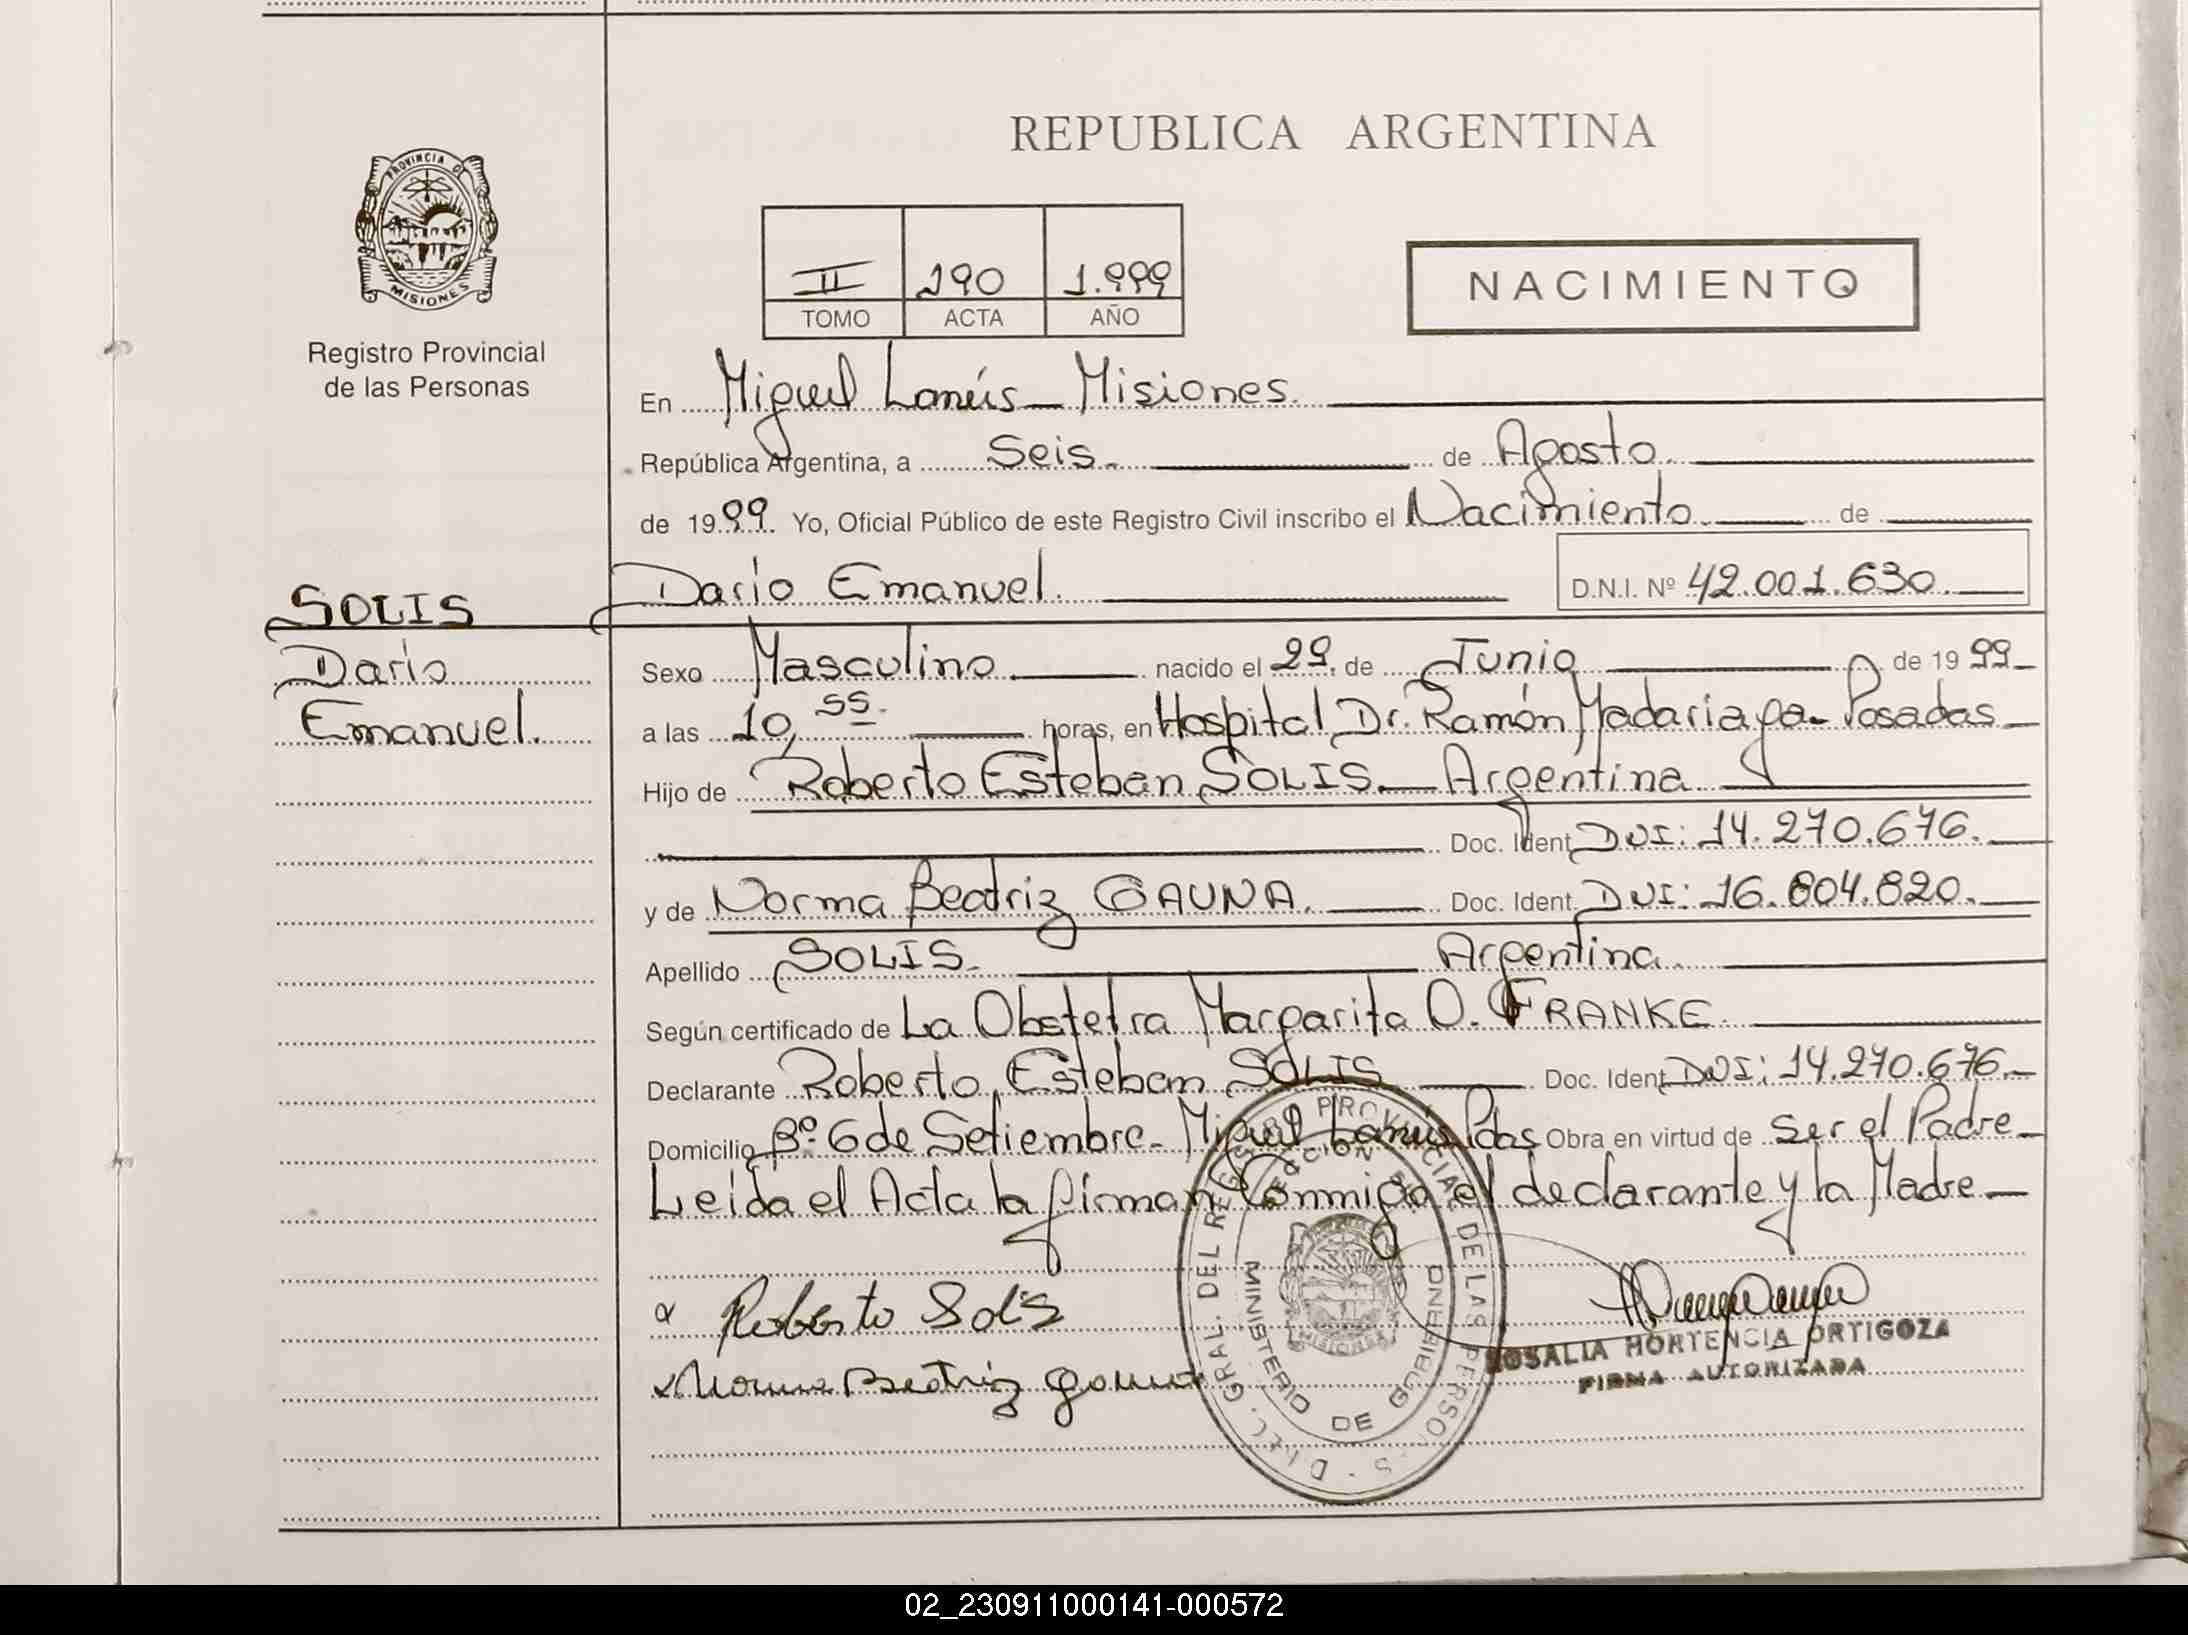 REPUBLICA ARGENTINA
PROVINCIA DE
MISIONES
Registro Provincial
de las Personas
II 190 1.999
TOMO ACTA AÑO
NACIMIENTO
En Miguel Lanús - Misiones.
República Argentina, a Seis. de Agosto.
de 1999. Yo, Oficial Público de este Registro Civil inscribo el Nacimiento de
Darío Emanuel. D.N.I. Nº 42.001.630.
SOLIS
Darío
Emanuel.
Sexo Masculino nacido el 29. de Junio de 1999
a las 10,55. horas, en Hospital Dr. Ramón Madariaga - Posadas
Hijo de Roberto Esteban SOLIS. Argentina
Doc. Ident. DNI: 14.270.676.
y de Norma Beatriz GAUNA. Doc. Ident. DNI: 16.804.820.
Apellido SOLIS. Argentina.
Según certificado de La Obstetra Margarita O. FRANKE.
Declarante Roberto Esteban SOLIS Doc. Ident. DNI: 14.270.676.
Domicilio Bº 6 de Setiembre - Miguel Lanús Pdas Obra en virtud de ser el Padre
Leída el Acta la firman Conmigo el declarante y la Madre
Roberto Solis
Norma Beatriz Gauna
DIREC. GRAL. DEL REGISTRO PROVINCIAL DE LAS PERSONAS
MINISTERIO DE GOBIERNO
MISIONES
ROSALIA HORTENCIA ORTIGOZA
FIRMA AUTORIZADA
02_230911000141-000572